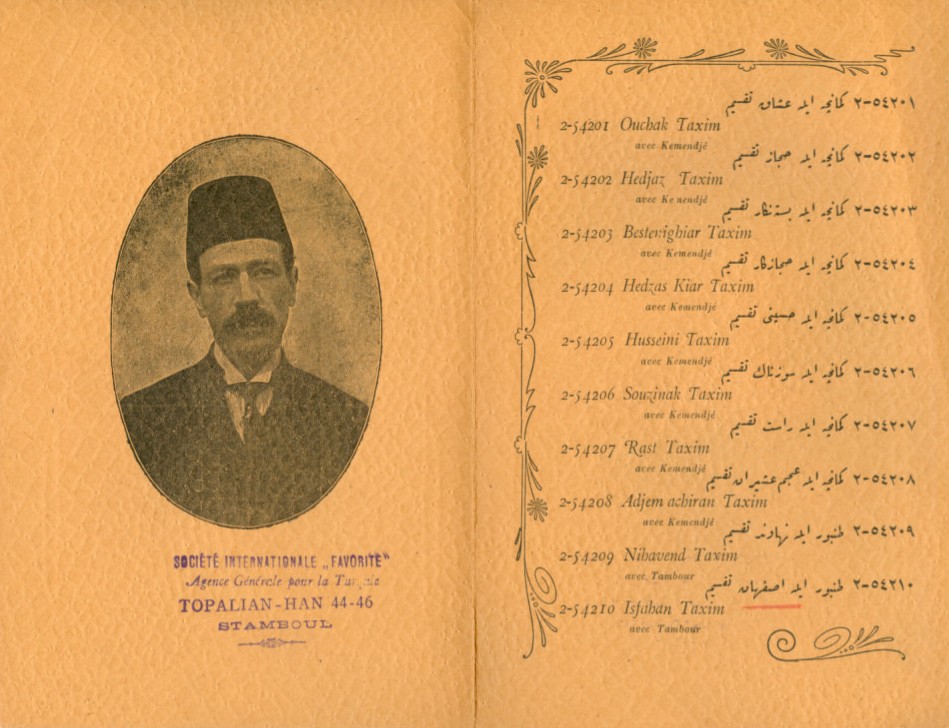 SOCIÉTÉ INTERNATIONALE „FAVORITE"
Agence Générale pour la Turquie
TOPALIAN-HAN 44-46
STAMBOUL
٢-٥٤٢٠١ كمانچه ايله عشاق تقسيم
2-54201 Ouchak Taxim
avec Kemendjé
٢-٥٤٢٠٢ كمانچه ايله حجاز تقسيم
2-54202 Hedjaz Taxim
avec Kemendjé
٢-٥٤٢٠٣ كمانچه ايله بستنكار تقسيم
2-54203 Bestenighiar Taxim
avec Kemendjé
٢-٥٤٢٠٤ كمانچه ايله حجازكار تقسيم
2-54204 Hedzas Kiar Taxim
avec Kemendjé
٢-٥٤٢٠٥ كمانچه ايله حسينى تقسيم
2-54205 Husseini Taxim
avec Kemendjé
٢-٥٤٢٠٦ كمانچه ايله سوزناك تقسيم
2-54206 Souzinak Taxim
avec Kemendjé
٢-٥٤٢٠٧ كمانچه ايله راست تقسيم
2-54207 Rast Taxim
avec Kemendjé
٢-٥٤٢٠٨ كمانچه ايله عجم عشيران تقسيم
2-54208 Adjem achiran Taxim
avec Kemendjé
٢-٥٤٢٠٩ طنبور ايله نهاوند تقسيم
2-54209 Nihavend Taxim
avec Tambour
٢-٥٤٢١٠ طنبور ايله اصفهان تقسيم
2-54210 Isfahan Taxim
avec Tambour